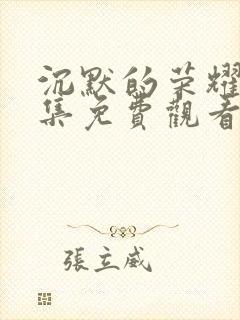 沉默的荣耀
集免費觀看
張立威